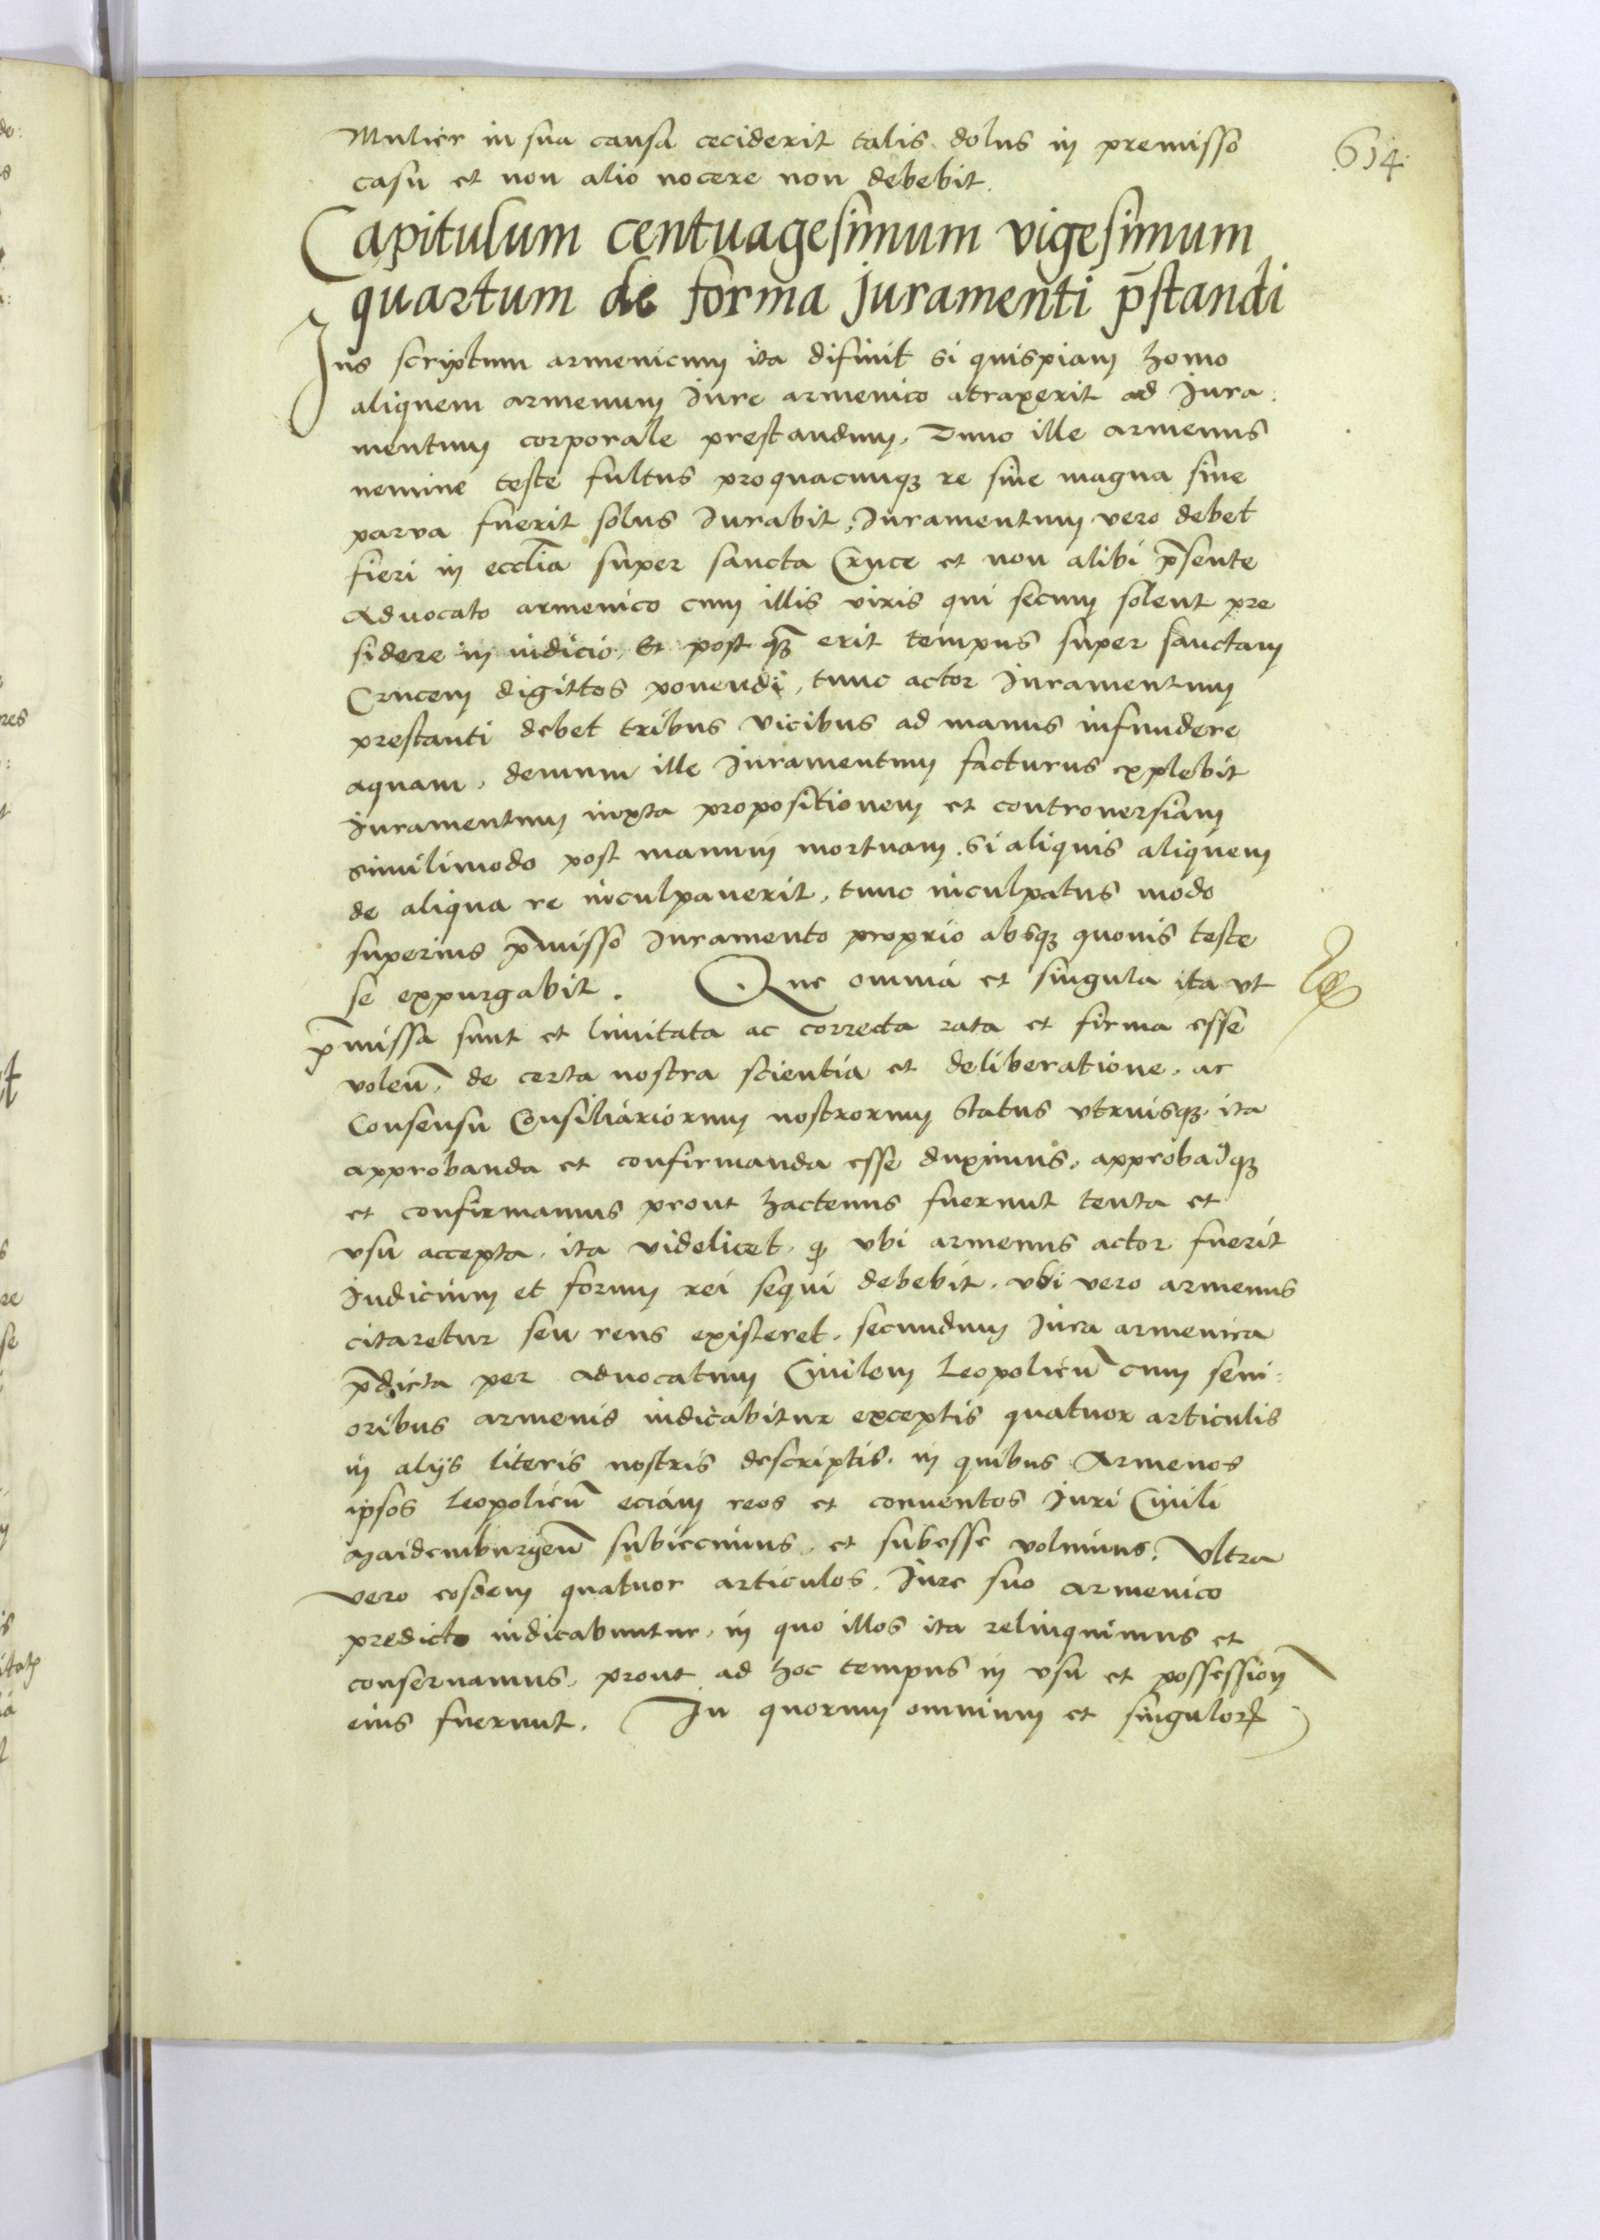 614
Mulier in sua causa ceciderit talis dolus in premisso
casu et non alio nocere non debebit.
Capitulum centuagesimum vigesimum
quartum de forma juramenti p̄standi
Jus scriptum armenicum ita difinit si quispiam homo
aliquem armenum Jure armenico atraxerit ad Jura:
mentum corporale prestandum, Dumo ille armenus
nemine teste fultus pro quacunqꝫ re siue magna siue
parva fuerit solus Jurabit, Juramentum vero debet
fieri in ecclīa super sancta Cruce et non alibi p̄sente
Advocato armenico cum illis viris qui secum solent pre
sidere in iudicio, Et post qꝫ̄ erit tempus super sanctam
Crucem digittos ponendi, tunc actor Juramentum
prestanti debet tribus vicibus ad manus infundere
aquam, demum ille Juramentum facturus explebit
Juramentum iuxta propositionem et controuersiam
similimodo post manum mortuam. si aliquis aliquem
de aliqua re inculpauerit, tunc inculpatus modo
superius p̄misso Juramento proprio absqꝫ quouis teste
se expurgabit. Que omnia et singula ita vt
p̄missa sunt et limitata ac correcta rata et firma esse
voleñ, de certa nostra scientia et deliberatione, ac
Consensu Consiliariorum nostrorum Status vtriusqꝫ, ita
approbanda et confirmanda esse duximus, approbaꝰqꝫ
et confirmamus prout hactenus fuerunt tenta et
vsu accepta, ita videlicet, ꝙ vbi armenus actor fuerit
Judicium et forum rei sequi debebit, vbi vero armenus
citaretur seu reus existeret, secundum Jura armenica
p̄dicta per advocatum Ciuilem Leopolieñ cum seni:
oribus armenis iudicabitur exceptis quatuor articulis
in alijs literis nostris descriptis, in quibus Armenos
ipsos Leopolieñ eciam reos et conuentos Juri Ciuili
Maidemburgeñ subiecimus, et subesse volumus, Vltra
vero eosdem quatuor articulos, Jure suo armenico
predicto iudicabuntur, in quo illos ita relinquimus et
conseruamus, prout ad hoc tempus in vsu et possession̄
eius fuerunt. In quorum omnium et singulorꝝ